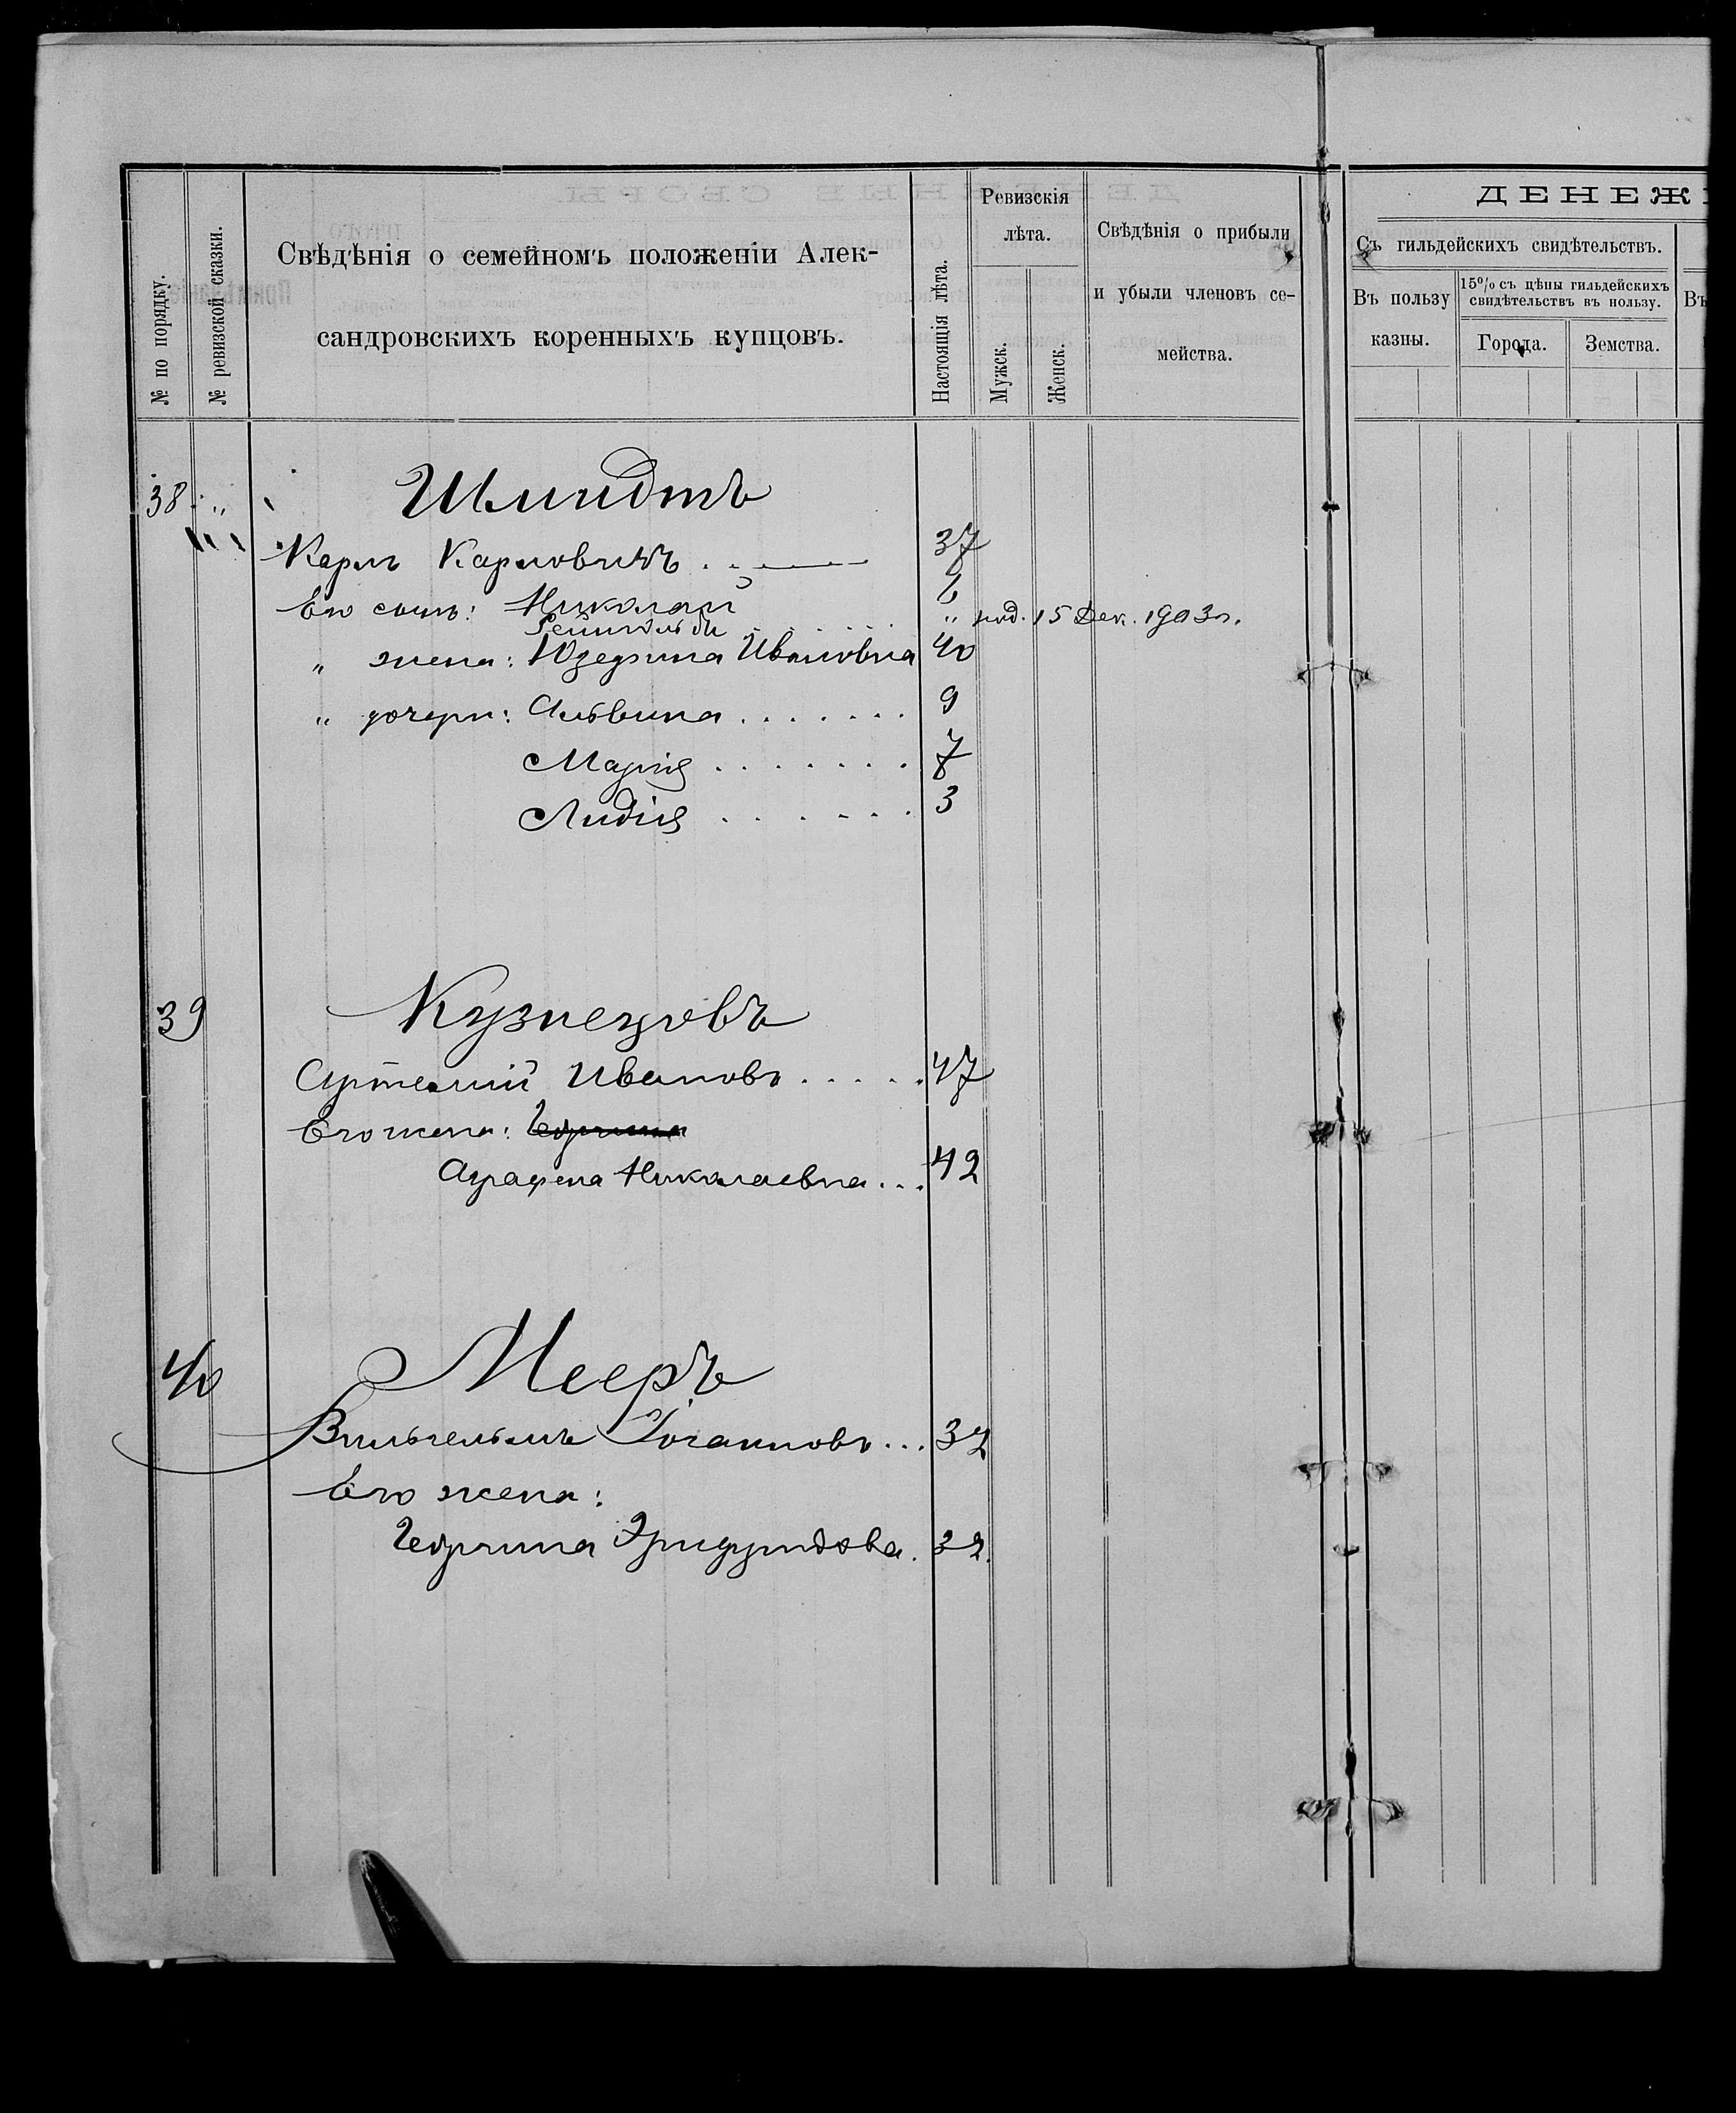 № по порядку.
№ ревизской сказки.
Свѣдѣнія о семейномъ положеніи Алек-
сандровскихъ коренныхъ купцовъ.
Настоящія лѣта.
Ревизскія
лѣта.
Мужск.
Женск.
Свѣдѣнія о прибыли
и убыли членовъ се-
мейства.
ДЕНЕЖ
Съ гильдейскихъ свидѣтельствъ.
Въ пользу
казны.
15% съ цѣны гильдейскихъ
свидѣтельствъ въ пользу.
Города.
Земства.
Въ
38 „ Шмидтъ
Карлъ Карловичъ . . 37
Его сынъ: Николай 6
Рейнгольдъ . . . . . . „ род. 15 Дек. 1903 г.
„ жена: Юзефина Ивановна 40
„ дочери: Альвина . . . . . . . 9
Марія . . . . . . . 7
Лидія . . . . . . 3
39 Кузнецовъ
Артемій Ивановъ . . . . . 47
Его жена:
Аграфена Николаевна . . . 42
40 Мееръ
Вильгельмъ Іоганновъ . . . 37
Его жена: